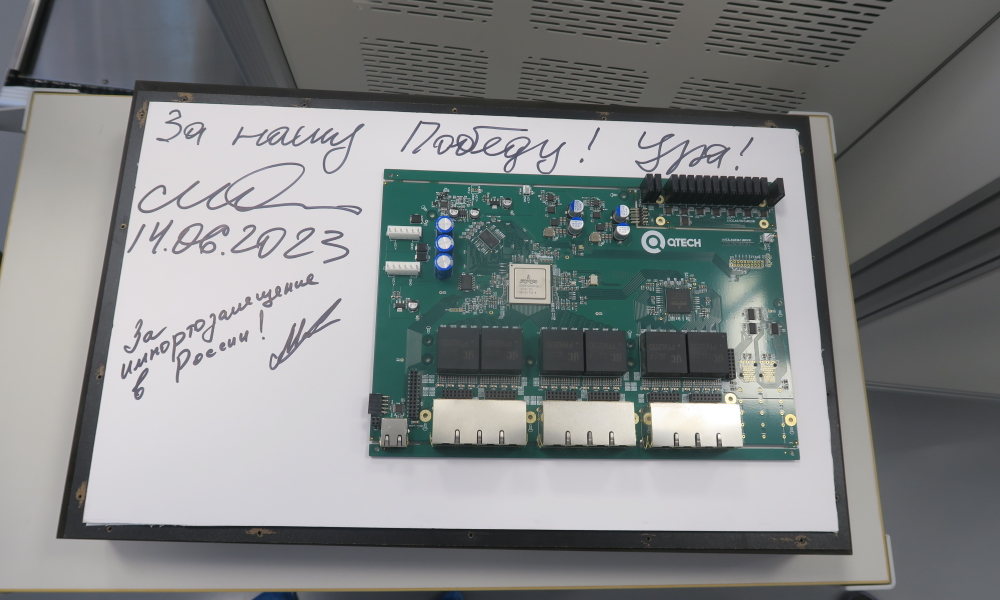 За нашу Победу! Ура!
14.06.2023
За
импортозамещение
в России!
QTECH